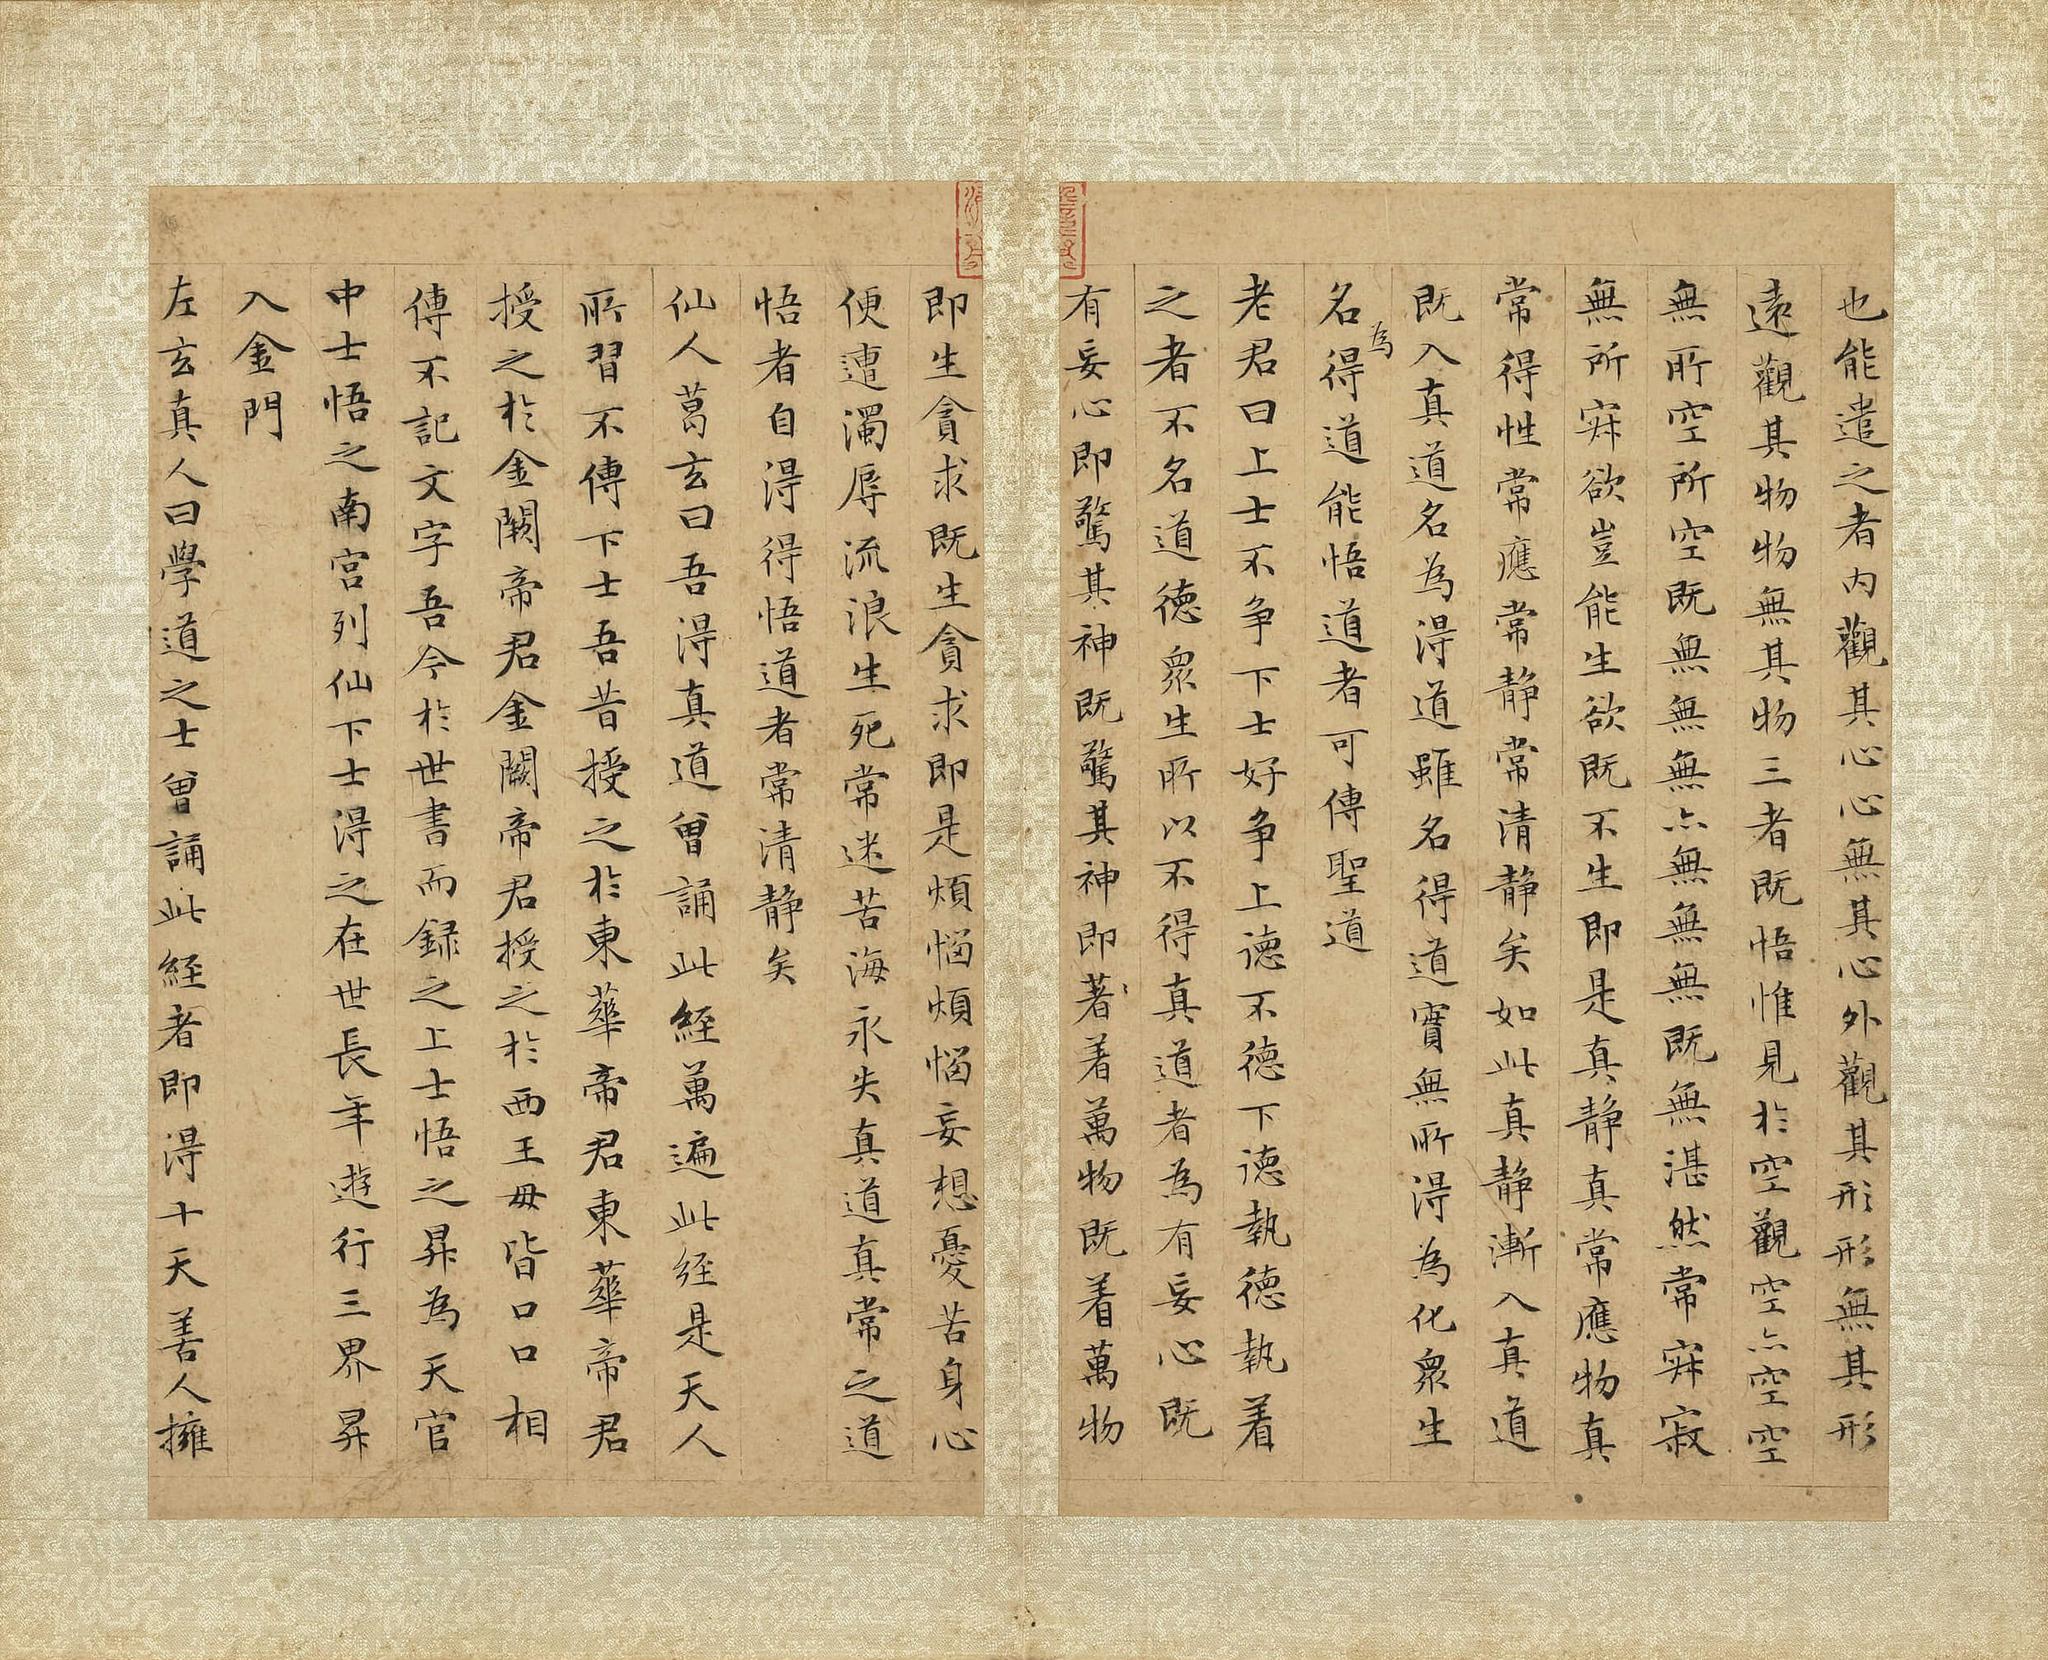 也能遣之者內觀其心心無其心外觀其形形無其形
遠觀其物物無其物三者既悟惟見於空觀空亦空空
無所空所空既無無無亦無無無既無湛然常寂寂
無所寂欲豈能生欲既不生即是真静真常應物真
常得性常應常静常清静矣如此真静漸入真道
既入真道名為得道雖名得道實無所得為化衆生
名為得道能悟道者可傳聖道
老君曰上士不争下士好争上德不德下德執德執着
之者不名道德衆生所以不得真道者為有妄心既
有妄心即驚其神既驚其神即著着萬物既着萬物
即生貪求既生貪求即是煩惱煩惱妄想憂苦身心
便遭濁辱流浪生死常迷苦海永失真道真常之道
悟者自得得悟道者常清静矣
仙人葛玄曰吾得真道曾誦此經萬遍此經是天人
所習不傳下士吾昔授之於東華帝君東華帝君
授之於金闕帝君金闕帝君授之於西王母皆口口相
傳不記文字吾今於世書而録之上士悟之昇為天官
中士悟之南宫列仙下士得之在世長年遊行三界昇
入金門
左玄真人曰學道之士曾誦此經者即得十天善人擁